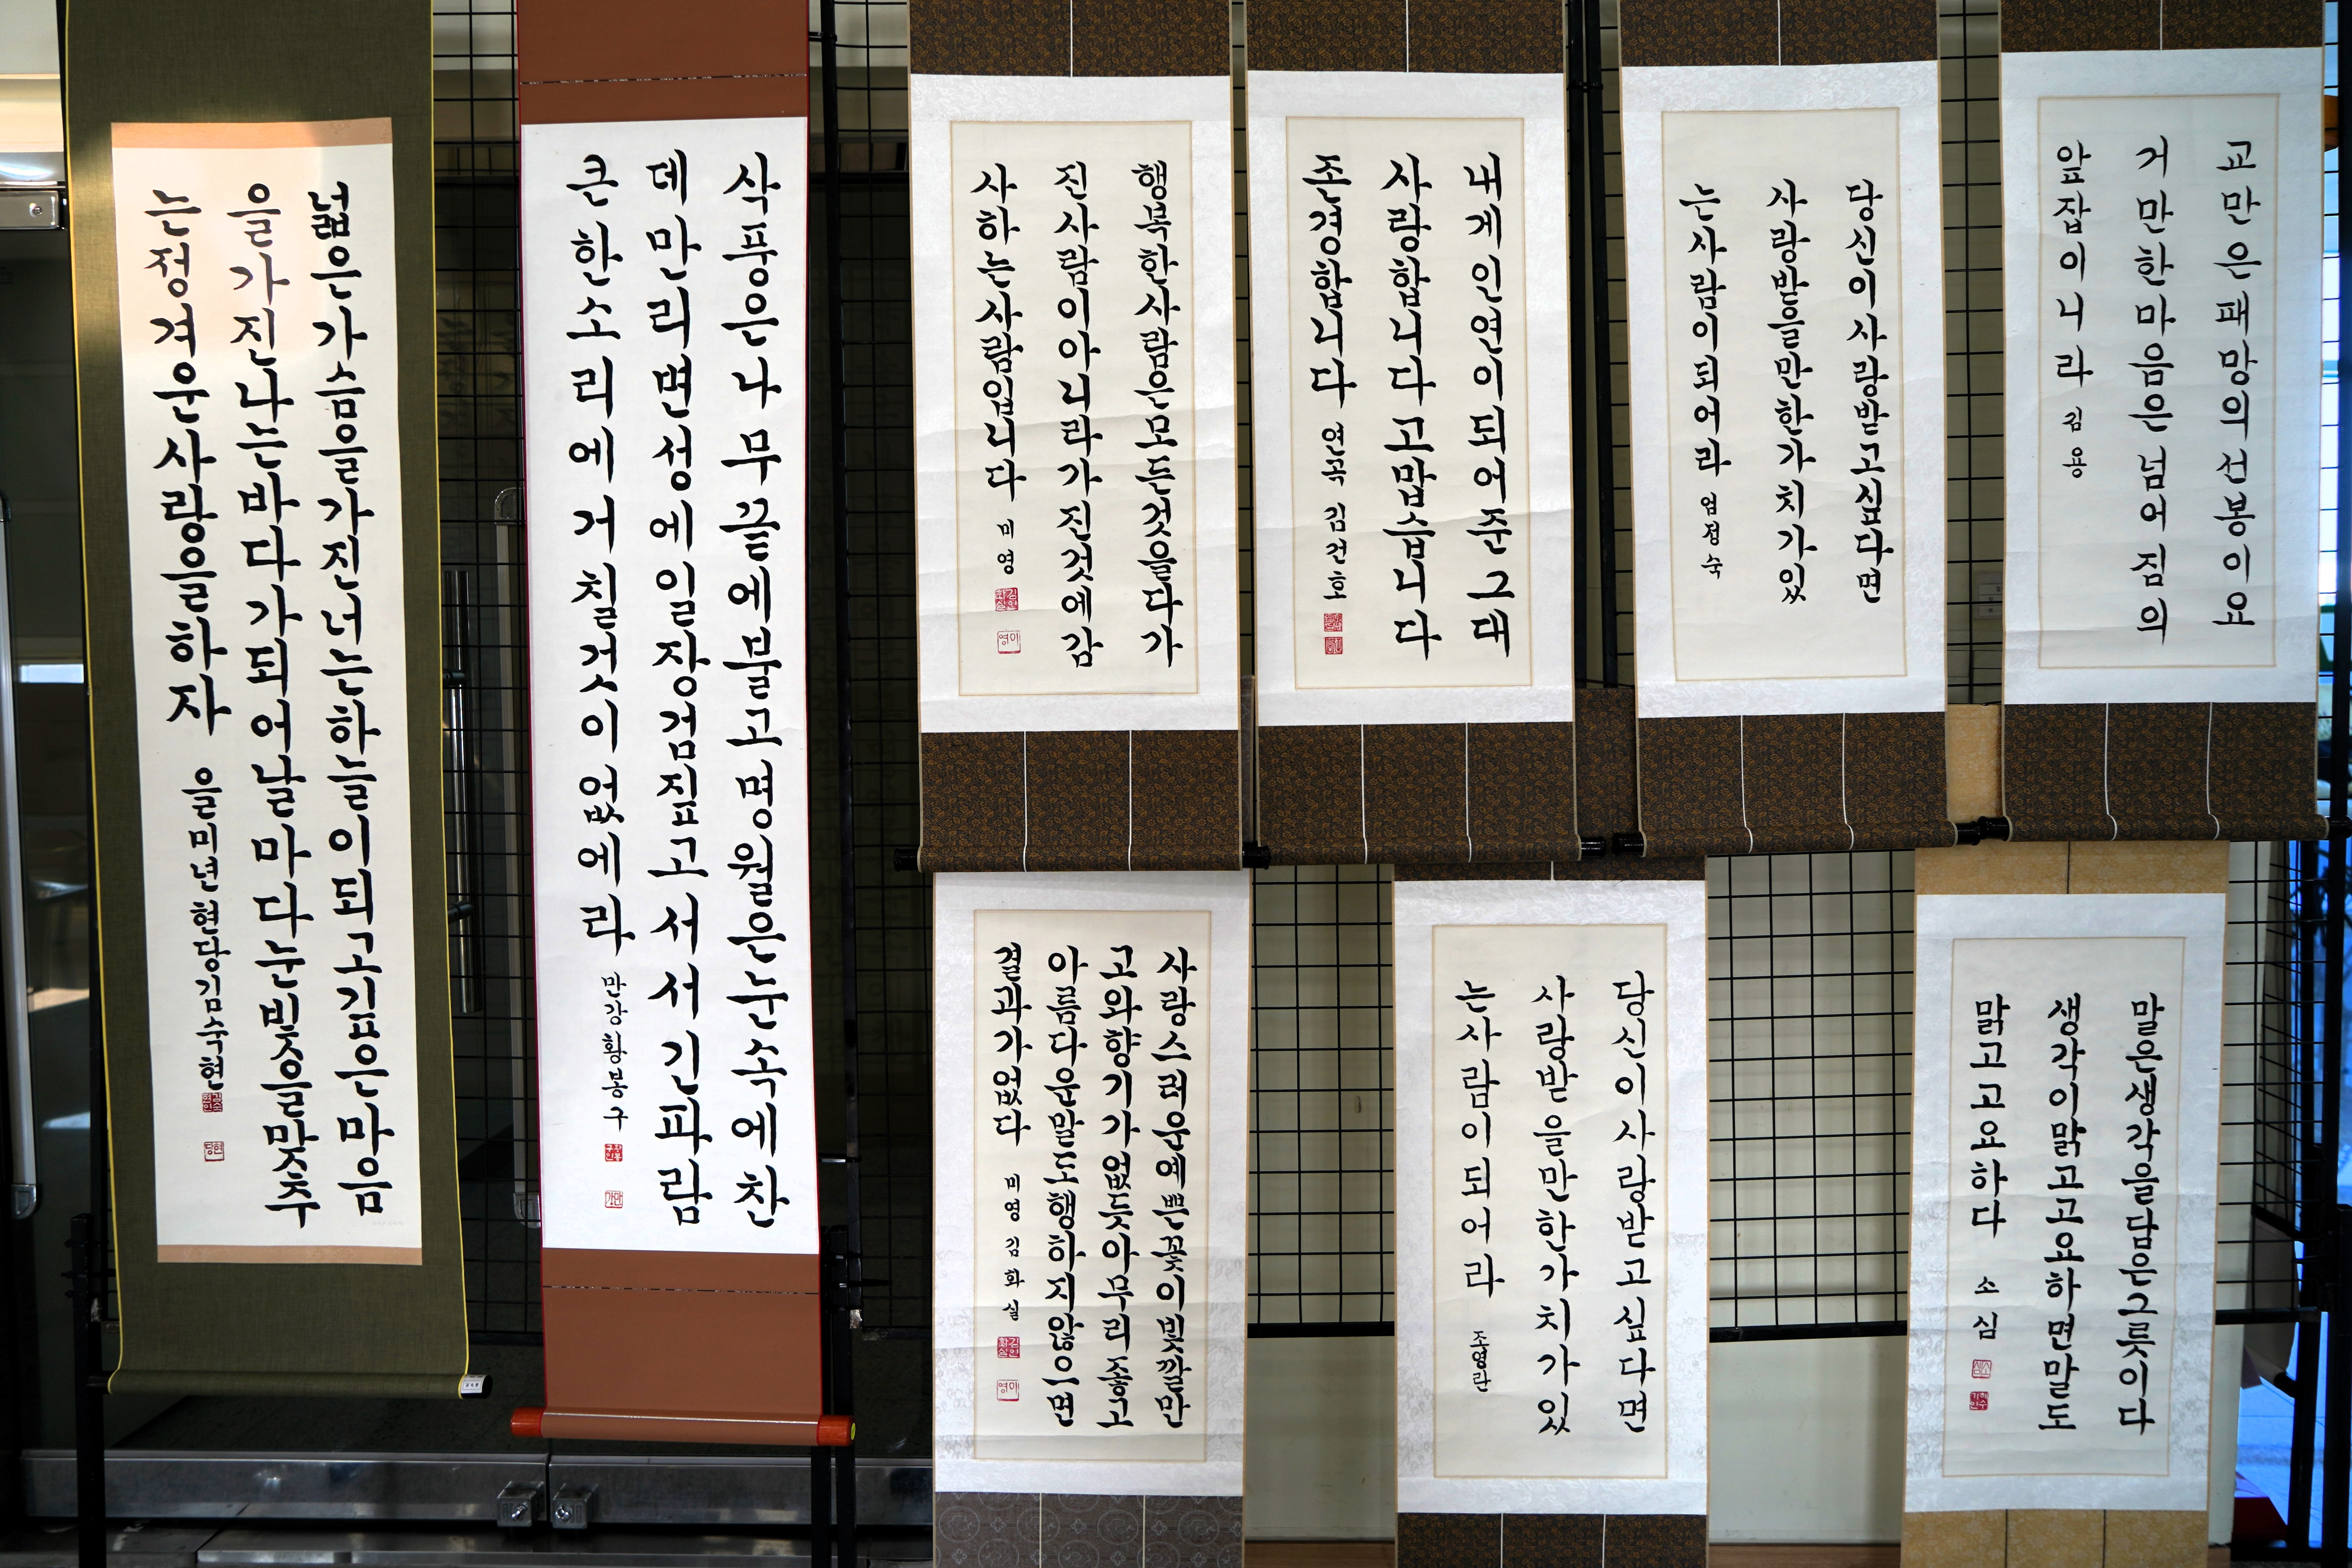 넓은가슴을가진너는하늘이되고깊은마음
을가진나는바다가되어날마다눈빛을맞추
는정겨운사랑을하자 을미년현당김숙현
삭풍은나무끝에불고명월은눈속에찬
데만리변성에일장검짚고서서긴파람
큰한소리에거칠것이없에라 만강황봉구
행복한사람은모든것을다가
진사람이아니라가진것에감
사하는사람입니다 미영
내게인연이되어준그대
사랑합니다고맙습니다
존경합니다 연곡 김건호
당신이사랑받고싶다면
사랑받을만한가치가있
는사람이되어라 엄정숙
교만은패망의선봉이요
거만한마음은넘어짐의
앞잡이니라 김용
사랑스러운예쁜꽃이빛깔만
고와향기가없듯아무리좋고
아름다운말도행하지않으면
결과가없다 미영김화실
당신이사랑받고싶다면
사랑받을만한가치가있
는사람이되어라 조영란
말은생각을담은그릇이다
생각이맑고고요하면말도
맑고고요하다 소심